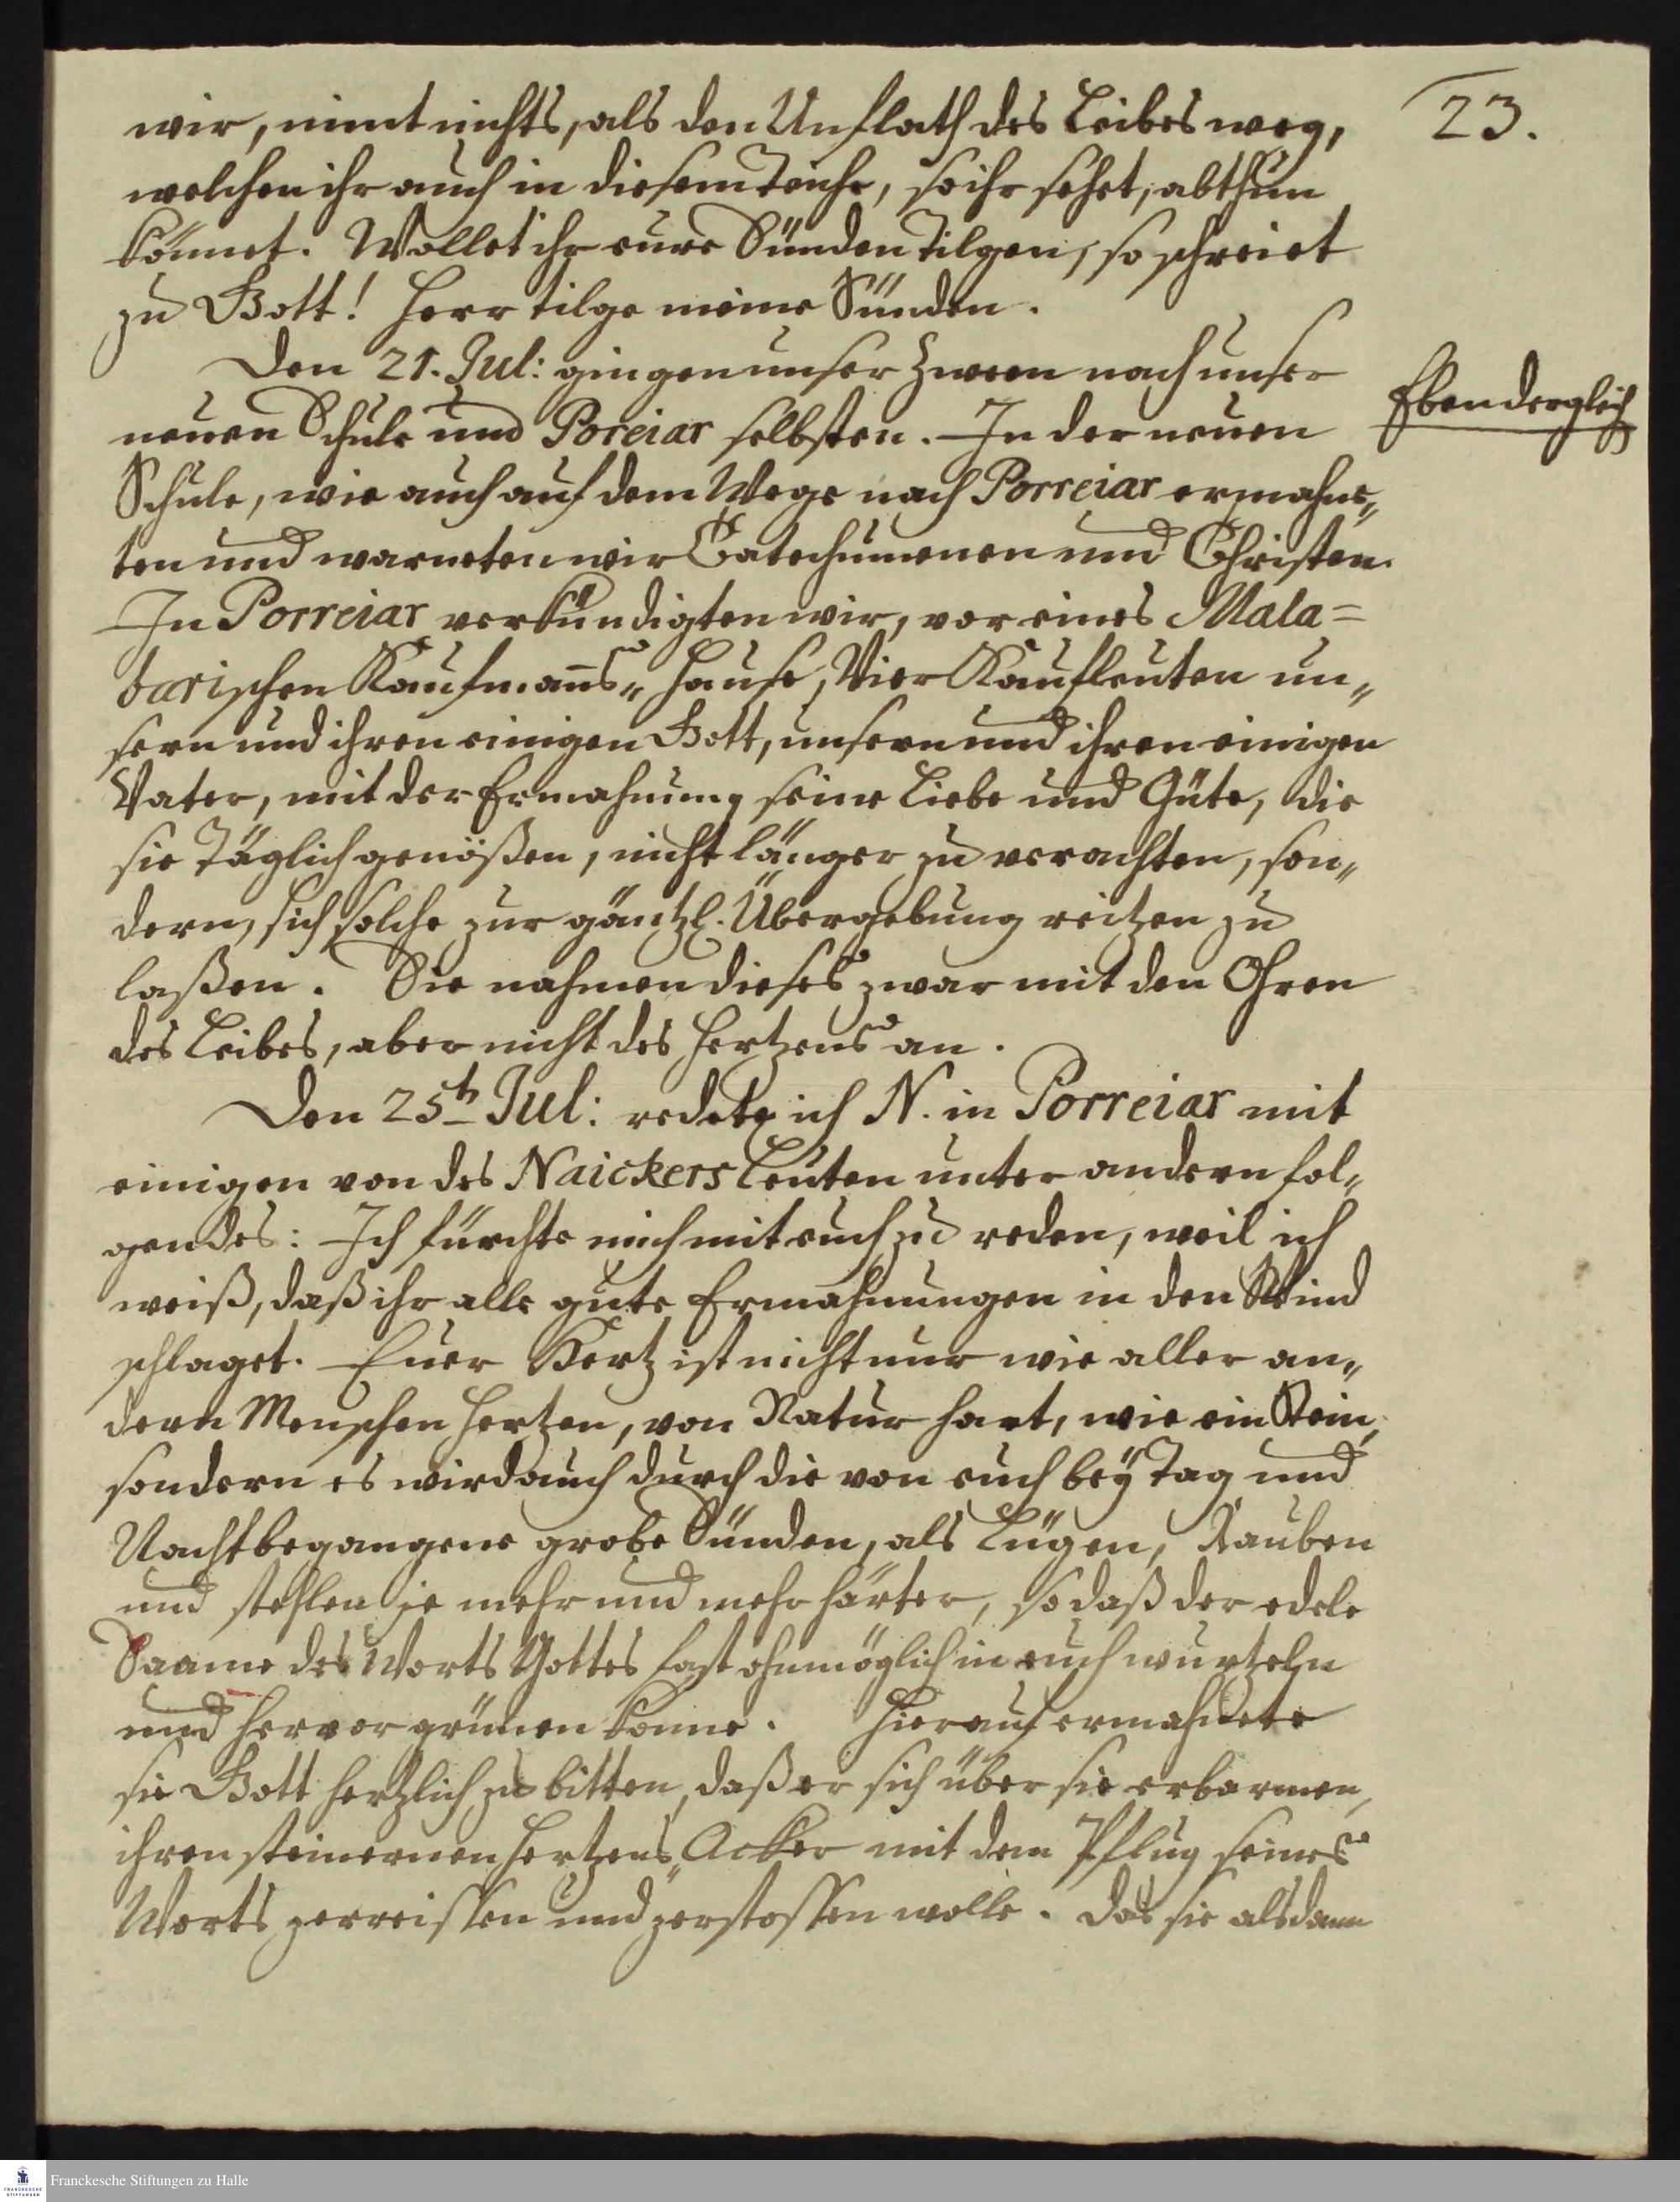 23.
wir, nimt nichts, als den Unflath des Leibes weg,
welchen ihr auch in diesem Teiche, so ihr sehet, abthun
könnet. Wollet ihr eure Sünden tilgen, so schreiet
zu Gott! Herr tilge meine Sünden.
Den 21. Jul: gingen unser zween nach unser
Ebendergleich
neuen Schule und Poreiar selbsten. In der neuen
Schule, wie auch auf dem Wege nach Porreiar ermahne„
ten und warneten wir Catechumenen und Christen.
In Porreiar verkündigten wir, vor eines Mala=
barischen Kaufmanns„ Hause, Vier Kaufleuten un„
sern und ihren einigen Gott, unsern und ihren einigen
Vater, mit der Ermahnung seine Liebe und Güte, die
sie täglich genößen, nicht länger zu verachten, son„
dern, sich solche zur gäntzl. Übergebung reitzen zu
laßen. Sie nahmen dieses zwar mit den Ohren
des Leibes, aber nicht des Hertzens an.
Den 25t Jul: redete ich N. in Porreiar mit
einigen von des Naickers Leuten unter andern fol„
gendes: Ich fürchte mich mit euch zu reden, weil ich
weiß, daß ihr alle gute Ermahnungen in den Wind
schlaget. Euer Hertz ist nicht nur wie aller an„
dern Menschen Hertzen, von Natur hart, wie ein Stein,
sondern es wird auch durch die von euch bey Tag und
Nacht begangene grobe Sünden, als Lügen, Rauben
und stehlen je mehr und mehr härter, so daß der edele
Saame des Worts Gottes fast ohnmöglich in euch wurtzeln
und hervor grünen könne. Hierauf ermahnete
sie Gott hertzlich zu bitten, daß er sich über sie erbarmen,
ihren steinernen Hertzens„Acker mit dem Pflug seines
Worts zerreissen und zerstossen wolle. Das sie alsdann
Franckesche Stiftungen zu Halle
FRANCKESCHE
STIFTUNGEN